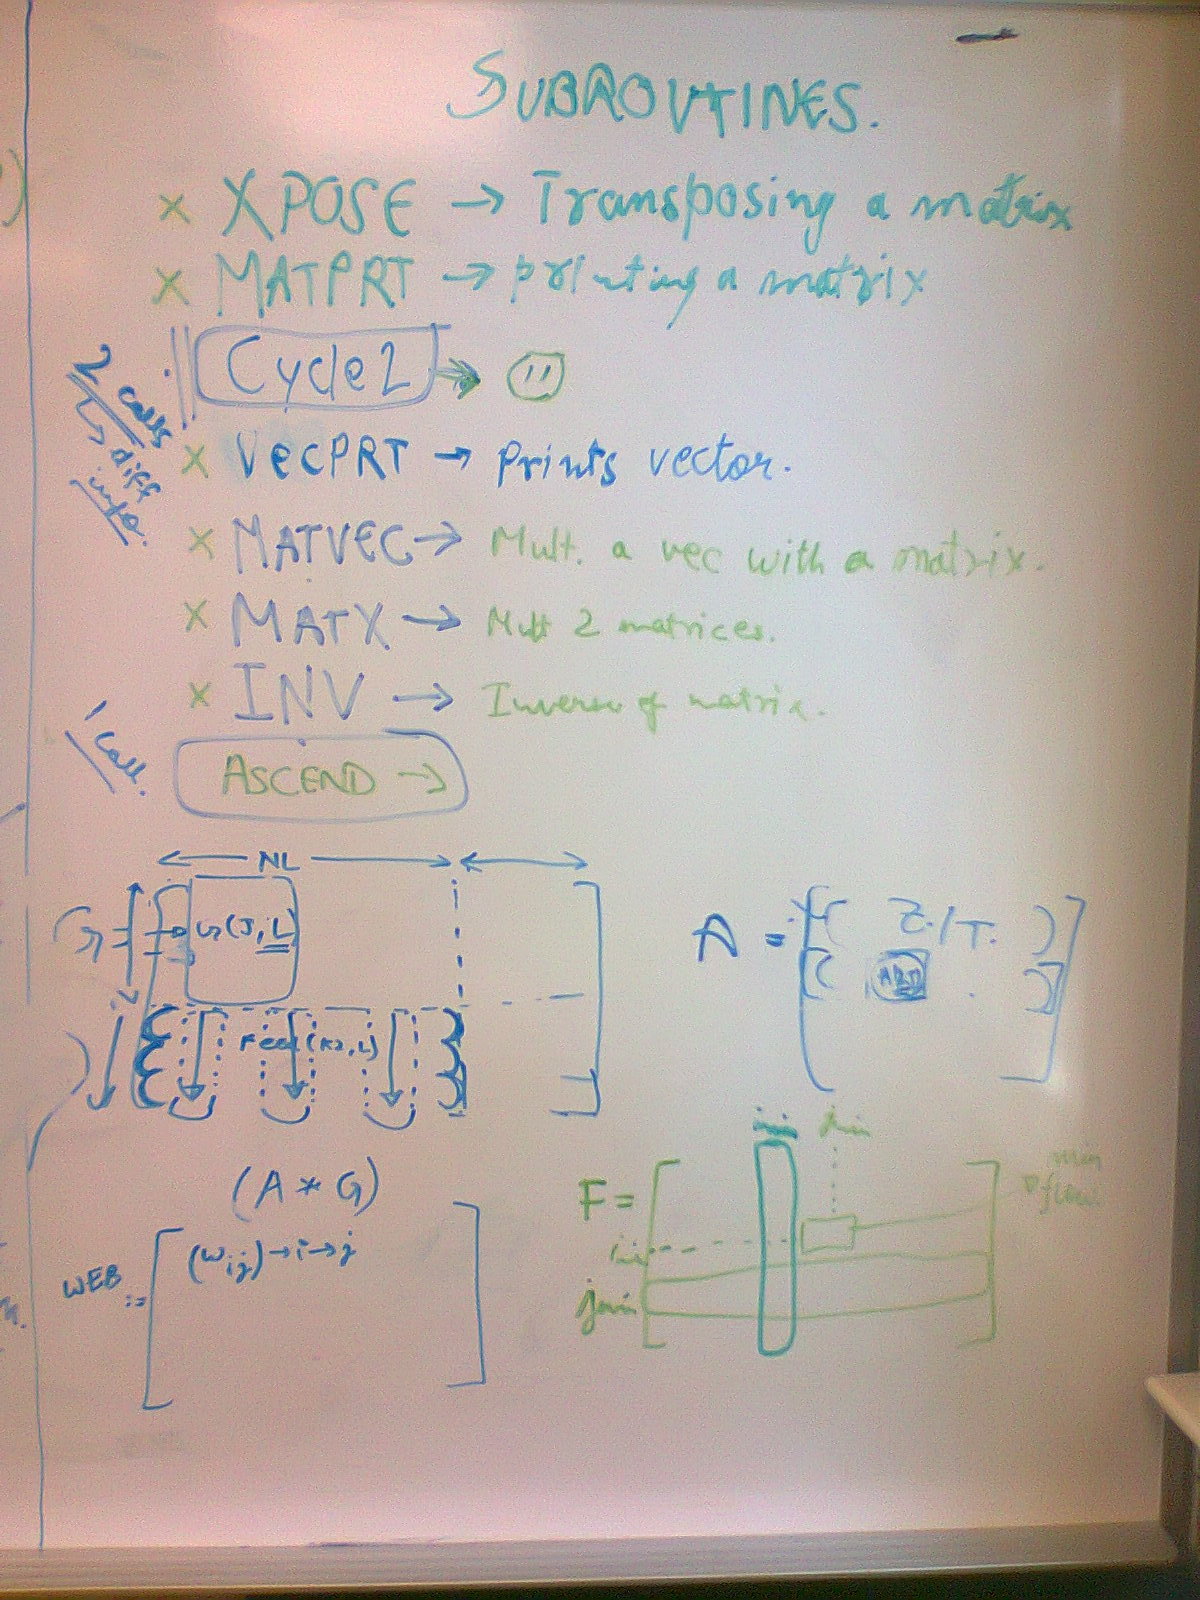 SUBROUTINES.
× XPOSE → Transposing a matrix
× MATPRT → printing a matrix
Cycle2 →
2 calls
→ diff
info.
× VECPRT → Prints vector.
× MATVEC → Mult. a vec with a matrix.
× MATX → Mult 2 matrices.
× INV → Inverse of matrix.
1 call.
ASCEND →
← NL →
G(J,L)
A = Z./T.
(K2,L)
(A * G)
WEB := (wij) → i → j
F =
imin
jmin
min
flow
jmin